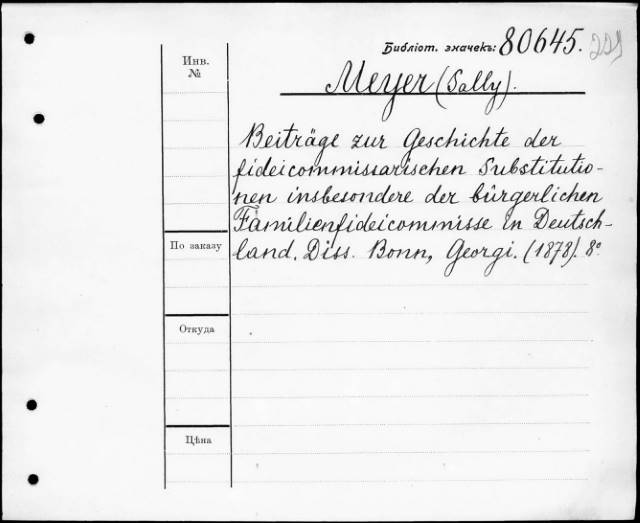 Библіот. значекъ: 80645.
Инв. №
Meyer (Sally).
Beiträge zur Geschichte der
fideicommissarischen Substitutio-
nen insbesondere der bürgerlichen
Familienfideicommisse in Deutsch-
land. Diss. Bonn, Georgi. (1878). 8°
По заказу
Откуда
Цѣна